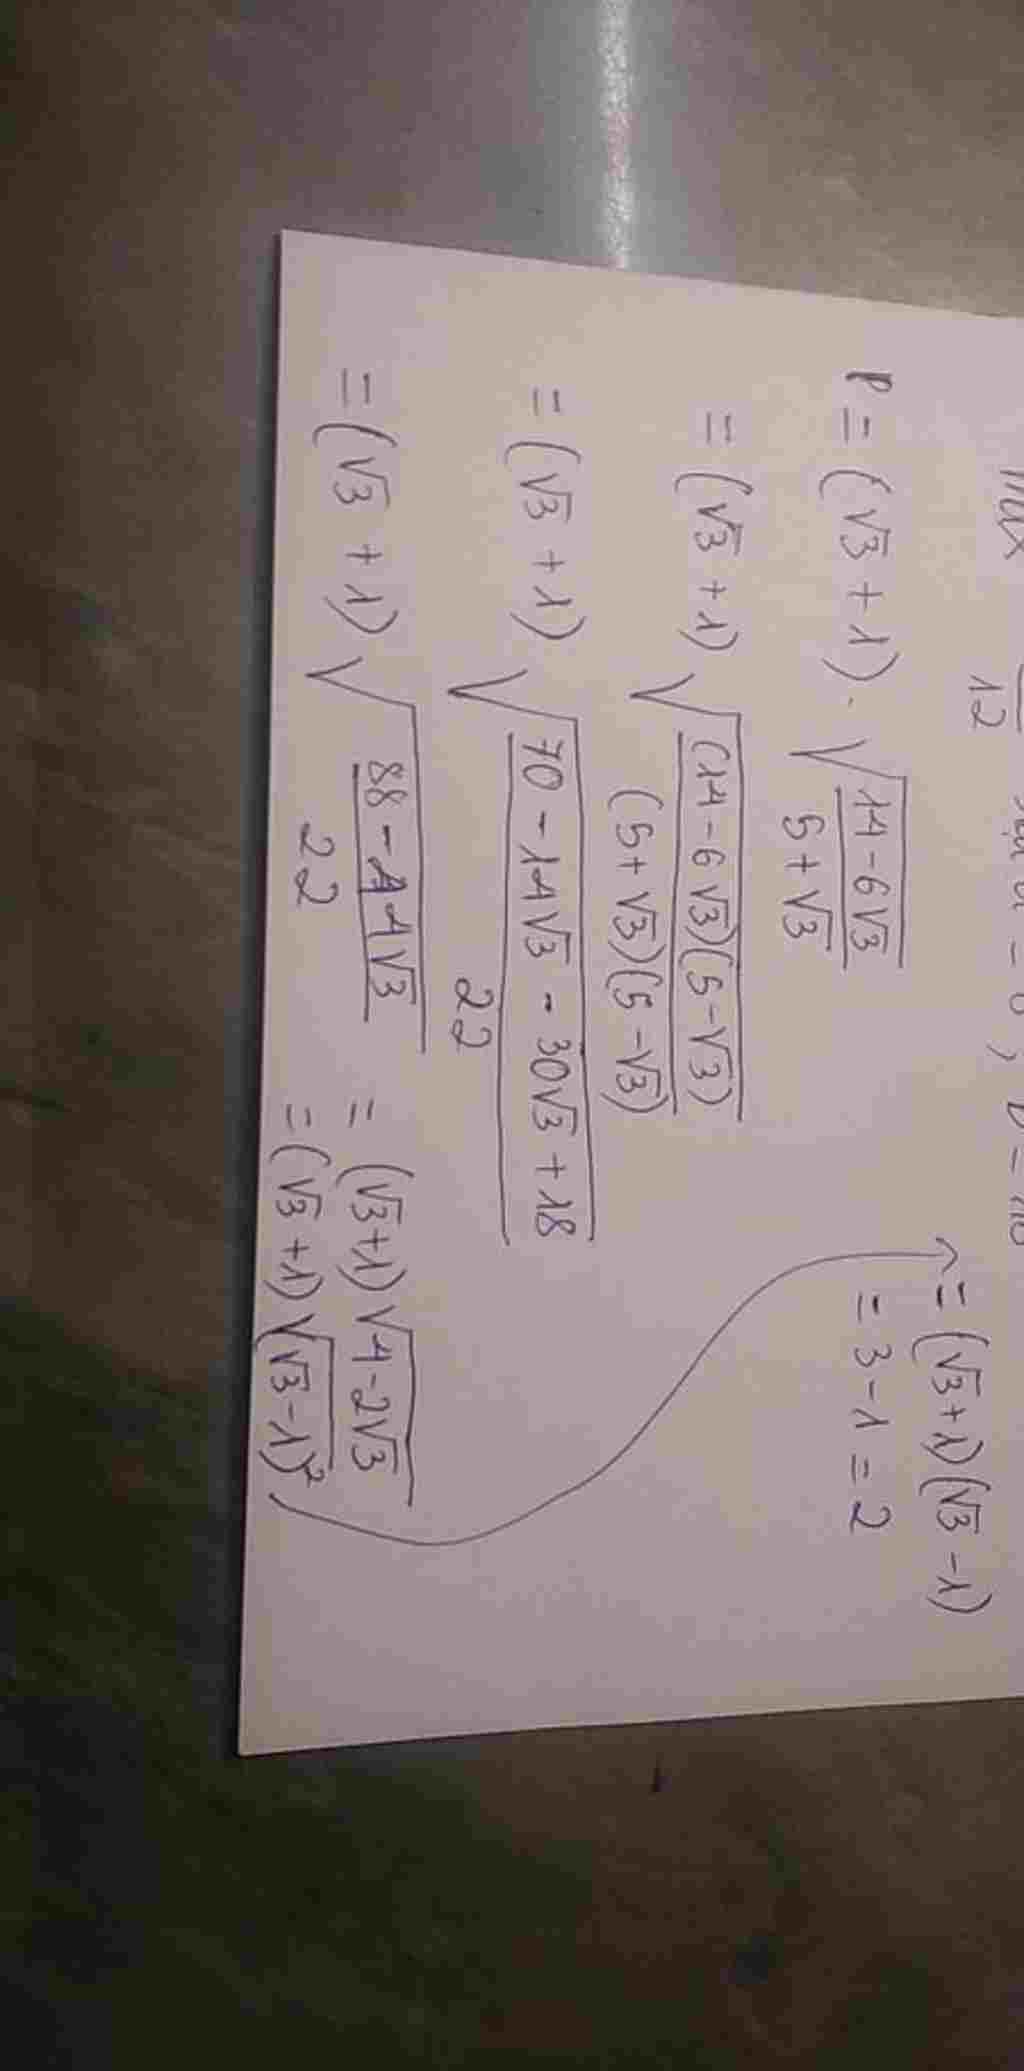 max
12
P = (√3 + 1) . √((14 - 6√3)/(5 + √3))
= (√3 + 1) √(((14 - 6√3)(5 - √3))/((5 + √3)(5 - √3)))
= (√3 + 1) √((70 - 14√3 - 30√3 + 18)/22)
= (√3 + 1) √((88 - 44√3)/22)
= (√3 + 1) √(4 - 2√3)
= (√3 + 1) √((√3 - 1)²)
= (√3 + 1)(√3 - 1)
= 3 - 1 = 2